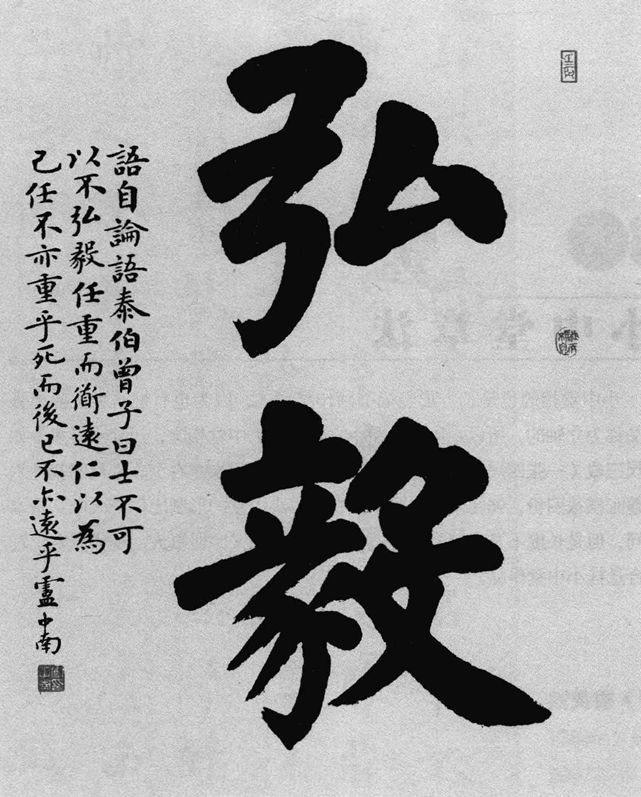 弘毅
語自論語泰伯曾子曰士不可
以不弘毅任重而衜遠仁以為
己任不亦重乎死而後已不亦遠乎盧中南